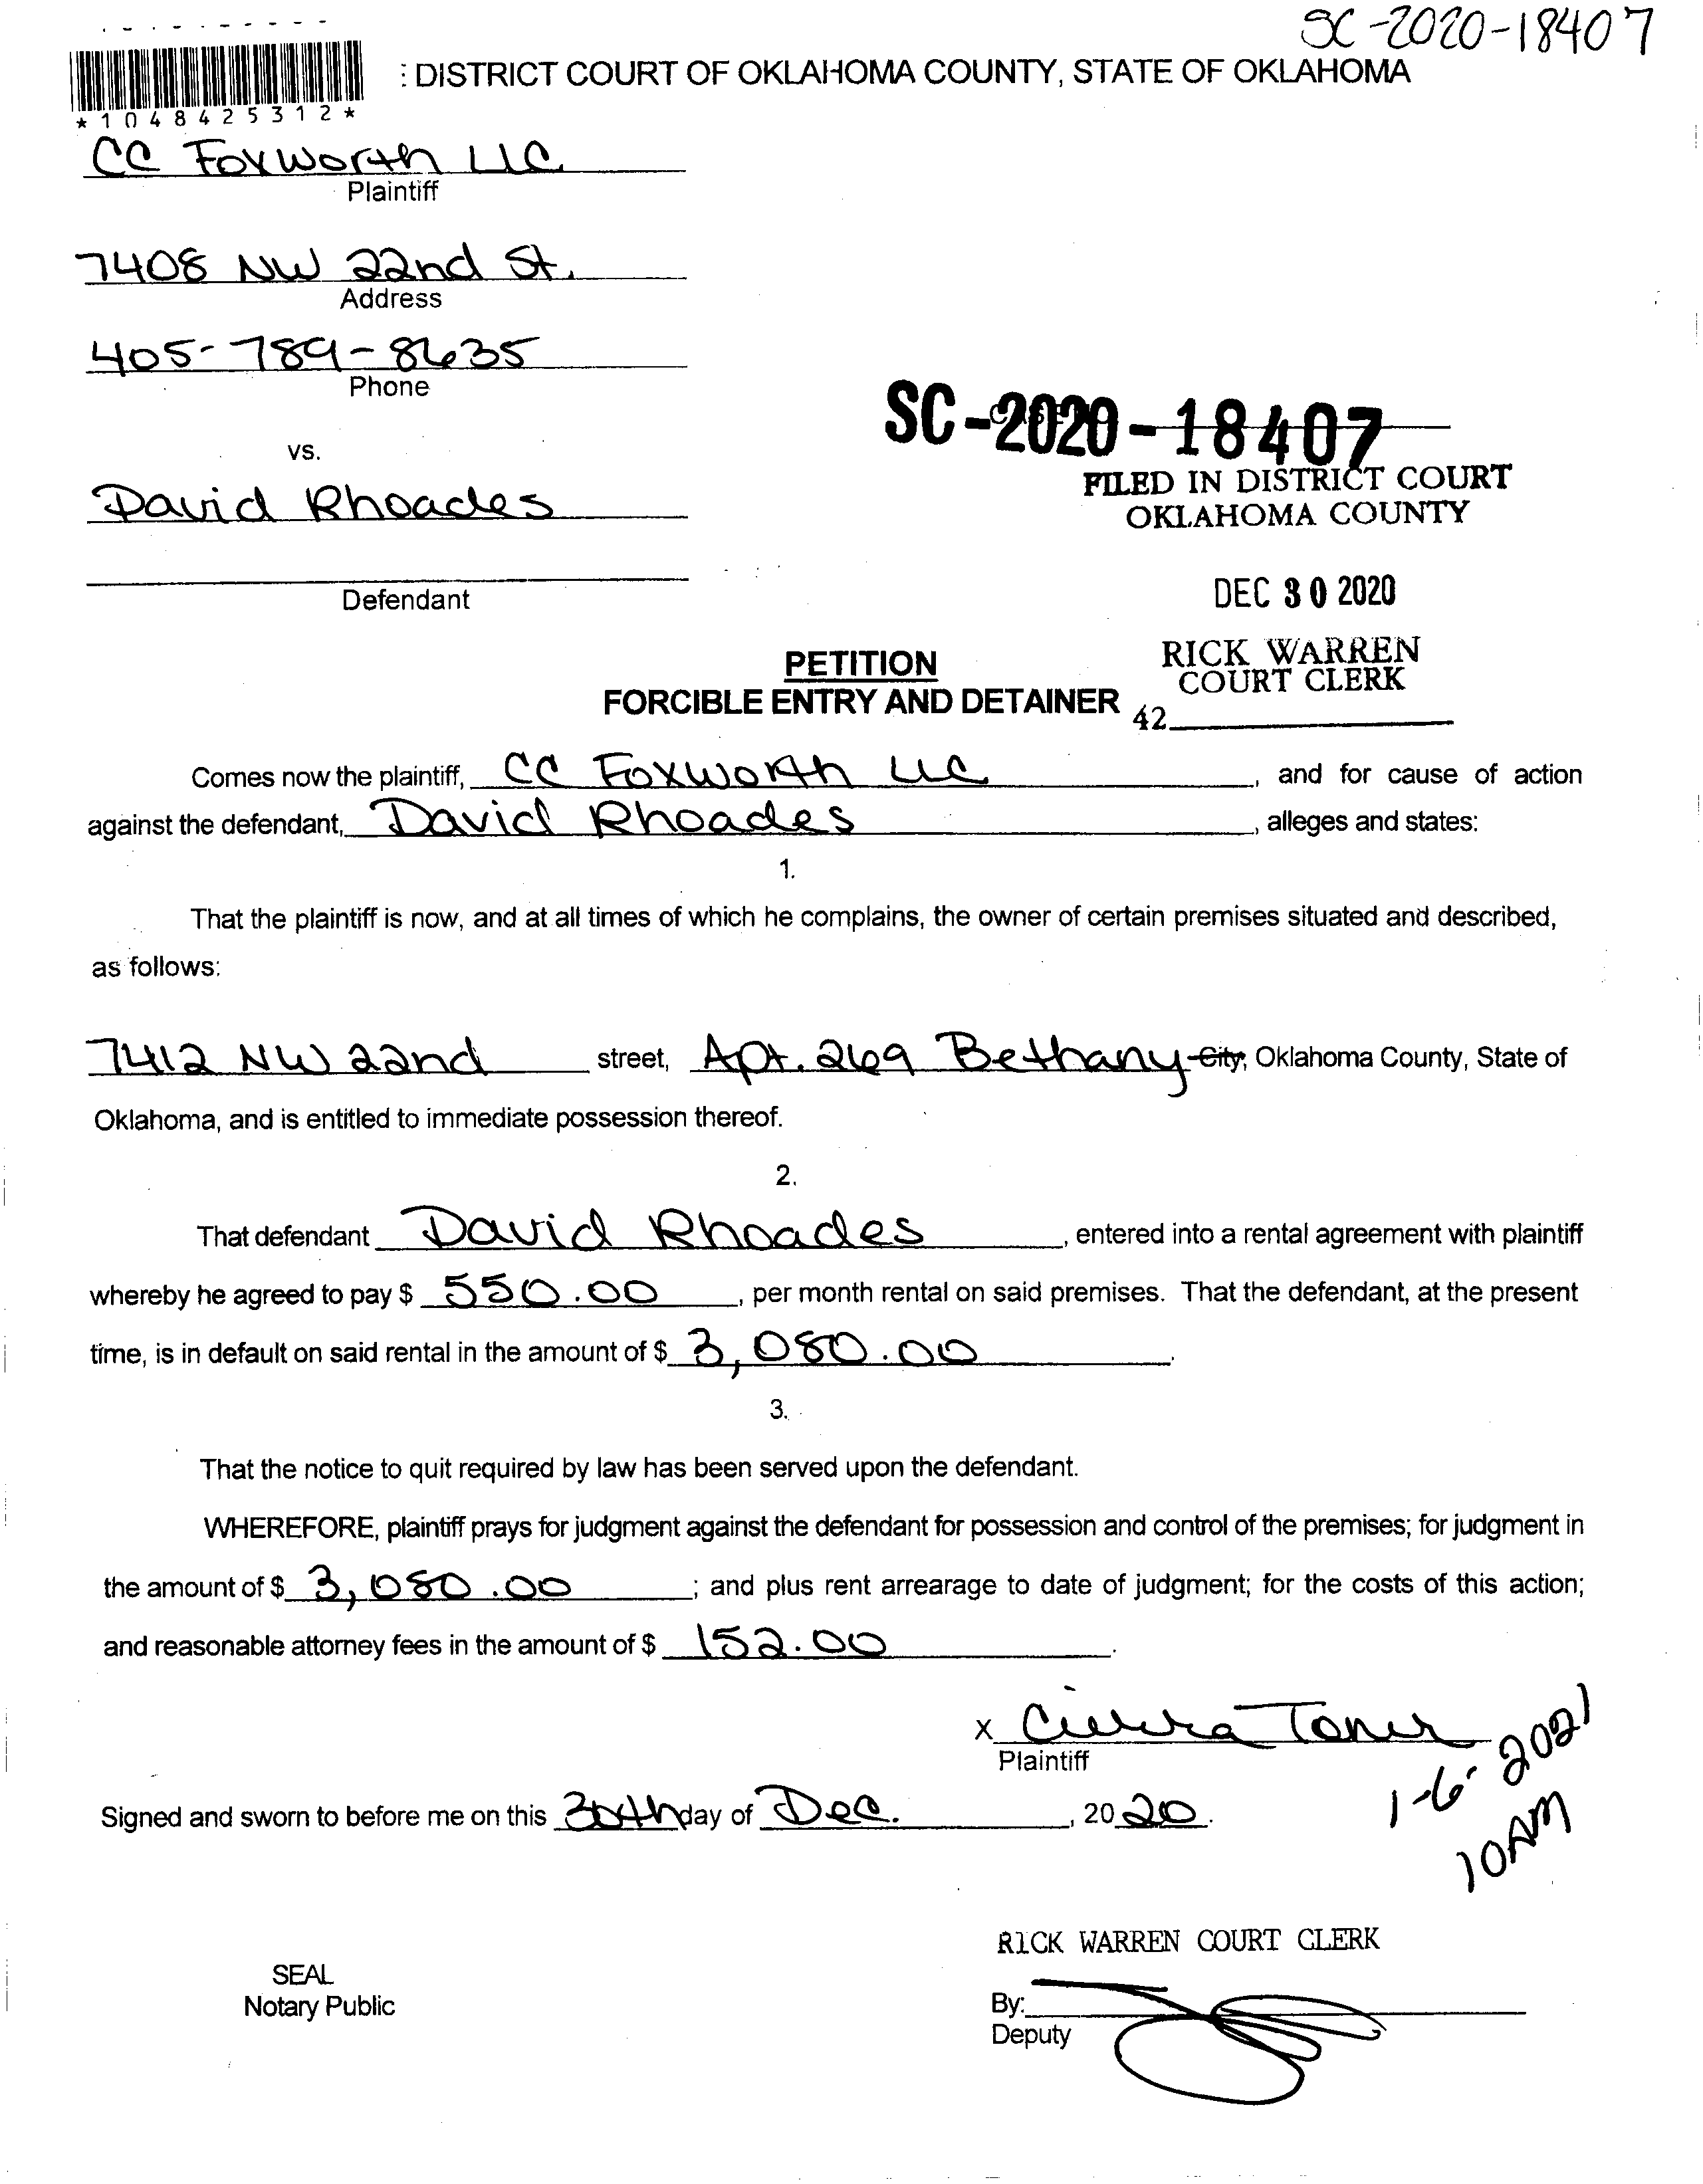 SC-2020-18407
: DISTRICT COURT OF OKLAHOMA COUNTY, STATE OF OKLAHOMA
*1048425312*
CC Foxworth LLC
Plaintiff
7408 NW 22nd St.
Address
405-789-8635
Phone
vs.
SC-2020-18407
FILED IN DISTRICT COURT
OKLAHOMA COUNTY
David Rhoades
DEC 30 2020
Defendant
RICK WARREN
COURT CLERK
42
PETITION
FORCIBLE ENTRY AND DETAINER
Comes now the plaintiff, CC Foxworth LLC, and for cause of action
against the defendant, David Rhoades, alleges and states:
1.
That the plaintiff is now, and at all times of which he complains, the owner of certain premises situated and described,
as follows:
7412 NW 22nd street, Apt. 269 Bethany City, Oklahoma County, State of
Oklahoma, and is entitled to immediate possession thereof.
2.
That defendant David Rhoades, entered into a rental agreement with plaintiff
whereby he agreed to pay $ 550.00, per month rental on said premises. That the defendant, at the present
time, is in default on said rental in the amount of $ 3,080.00.
3.
That the notice to quit required by law has been served upon the defendant.
WHEREFORE, plaintiff prays for judgment against the defendant for possession and control of the premises; for judgment in
the amount of $ 3,080.00; and plus rent arrearage to date of judgment; for the costs of this action;
and reasonable attorney fees in the amount of $ 152.00.
x Cierra Toner
Plaintiff
1-6-2021
10AM
Signed and sworn to before me on this 30th day of Dec., 2020.
RICK WARREN COURT CLERK
SEAL
Notary Public
By:
Deputy